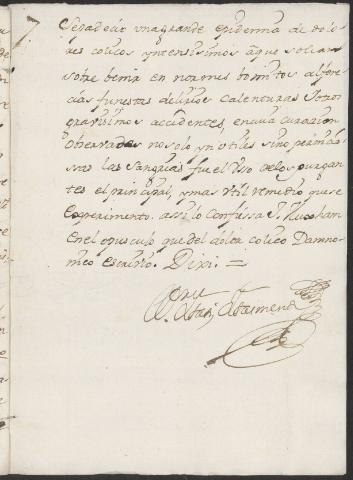 Sepadecio vna grande epidemia de dolo
res colicos yntensisimos aque solian
sobrebenir en normes bomitos alfere
cias funestas delirios calenturas y otros
gravisimos accidentes, en cuia curacion
observadas no solo ynutiles sino perniosi
sas las sangrias fue el uso de los purgan
tes el principal, y mas util remedio que se
experimento. assi lo confiessa J. Huxham
en el opusculo que del dolor colico Damno
nico escrivio. Dixi. =